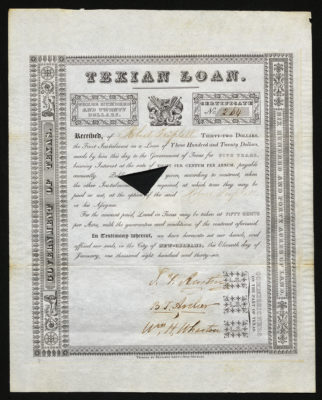 TEXIAN LOAN.
THREE HUNDRED
AND TWENTY
DOLLARS.
CERTIFICATE
No. 264
Received, of Robert Triplett THIRTY-TWO DOLLARS,
the First Instalment in a Loan of Three Hundred and Twenty Dollars,
made by him this day to the Government of Texas for FIVE YEARS,
bearing Interest at the EIGHT PER CENTUM PER ANNUM, payable
annually. given, according to contract, when
the other Instalments required, at which time they may be
paid in or not, at the option of the said
or his Assignee.
For the amount paid, Land in Texas may be taken at FIFTY CENTS
per Acre, until the guarantees and conditions of the contract aforesaid.
In Testimony whereof, we have hereunto set our hands, and
affixed our seals, in the City of NEW-ORLEANS, this Eleventh day of
January, one thousand eight hundred and thirty-six.
S. F. Austin
B. T. Archer
Wm. H. Wharton
COMMISSIONERS
GOVERNMENT OF TEXAS.
SIX HUNDRED AND FORTY ACRES OF LAND.